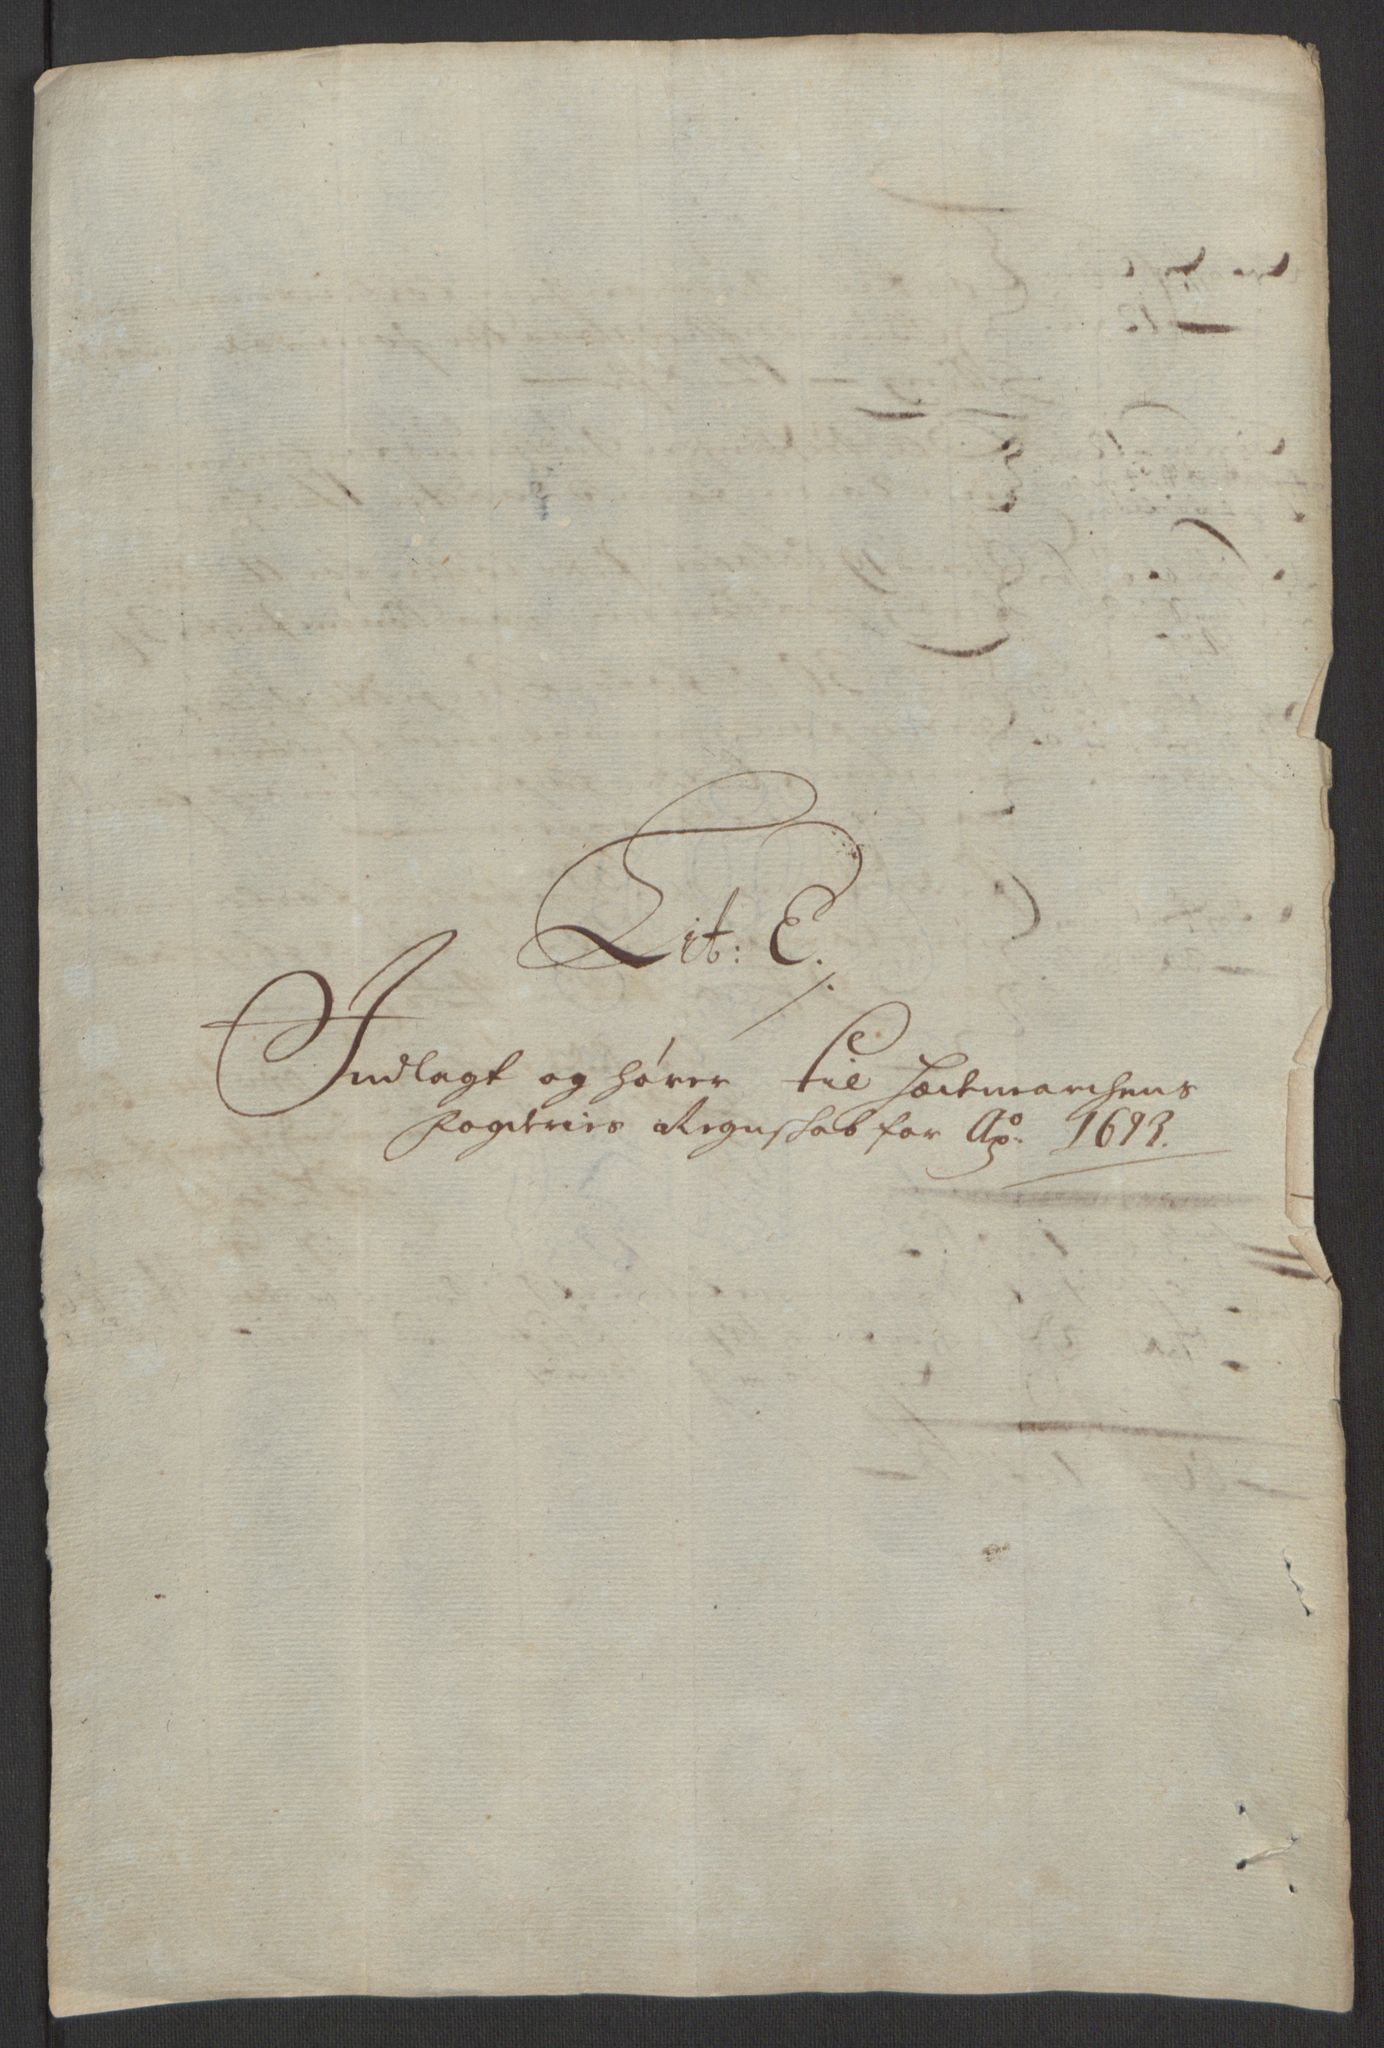 Lit: E.
Indlagt og hører til Hedemarchens
fogderies Regnskab for Ao: 1693.